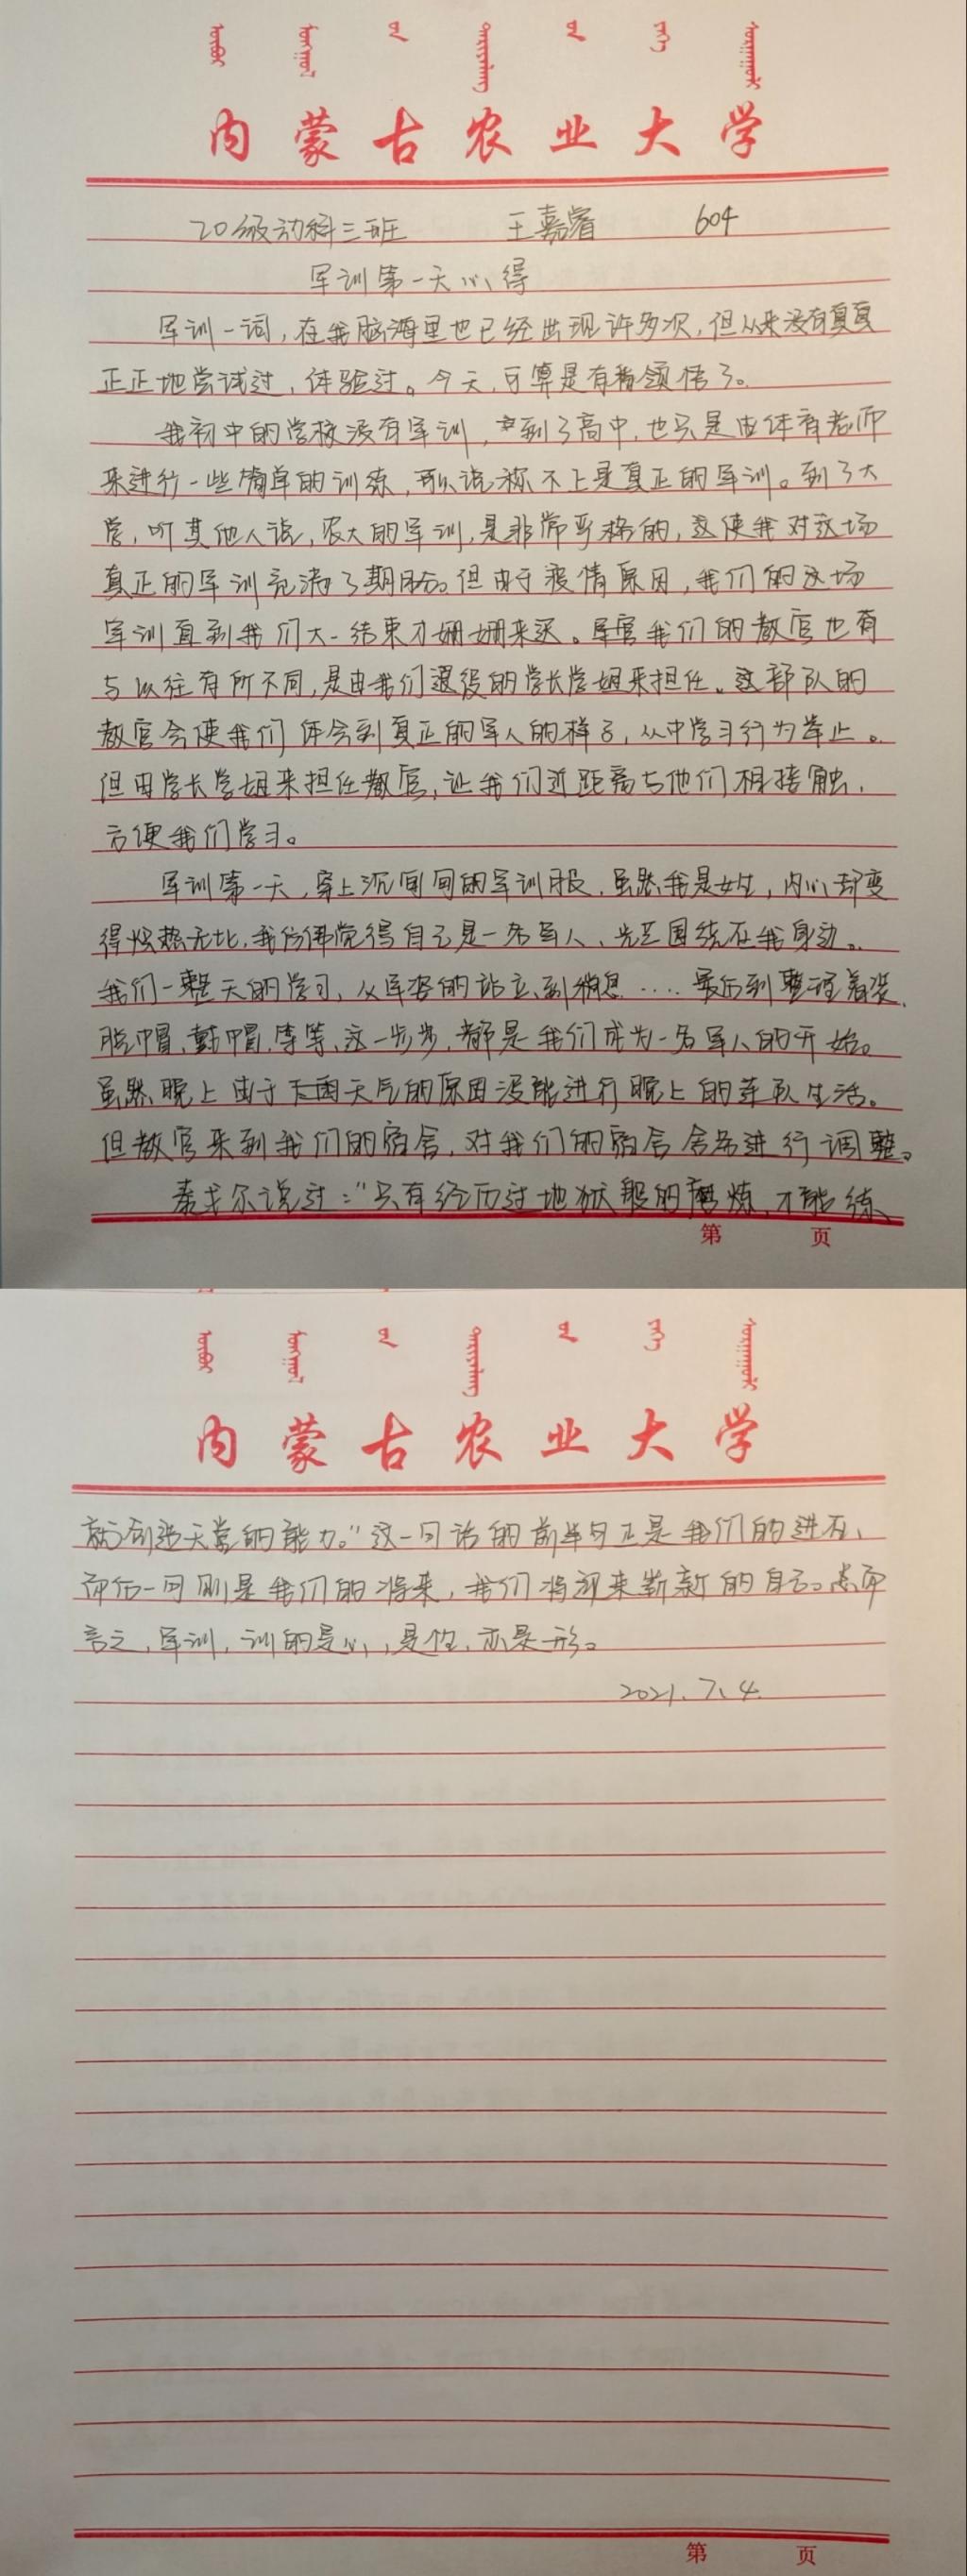 内蒙古农业大学
20级动科三班 王嘉睿 604
军训第一天心得
军训一词，在我脑海里也已经出现许多次，但从来没有真真
正正地尝试过，体验过。今天，可算是有着领悟了。
我初中的学校没有军训，到了高中，也只是由体育老师
来进行一些简单的训练，可以说称不上是真正的军训。到了大
学，听其他人说，农大的军训，是非常严格的，这使我对这场
真正的军训充满了期盼。但由于疫情原因，我们的这场
军训直到我们大一结束才姗姗来迟。军官我们的教官也有
与以往有所不同，是由我们退役的学长学姐来担任。这部队的
教官会使我们体会到真正的军人的样子，从中学习行为举止。
但由学长学姐来担任教官，让我们近距离与他们相接触，
方便我们学习。
军训第一天，穿上沉甸甸的军训服，虽然我是女生，内心却变
得炽热无比，我仿佛觉得自己是一名军人、光芒围绕在我身边。
我们一整天的学习，从军姿的站立，到稍息……最后到整理着装，
脱帽，戴帽，等等，这一步步，都是我们成为一名军人的开始。
虽然晚上由于下雨天气的原因没能进行晚上的连队生活。
但教官来到我们的宿舍，对我们的宿舍舍务进行调整。
泰戈尔说过：“只有经历过地狱般的磨炼，才能练
第 页
内蒙古农业大学
就创造天堂的能力。”这一句话的前半句正是我们的进在，
而后一句则是我们的将来，我们将迎来崭新的自己。总而
言之，军训，训的是心，是性，亦是形。
2021.7.4.
第 页